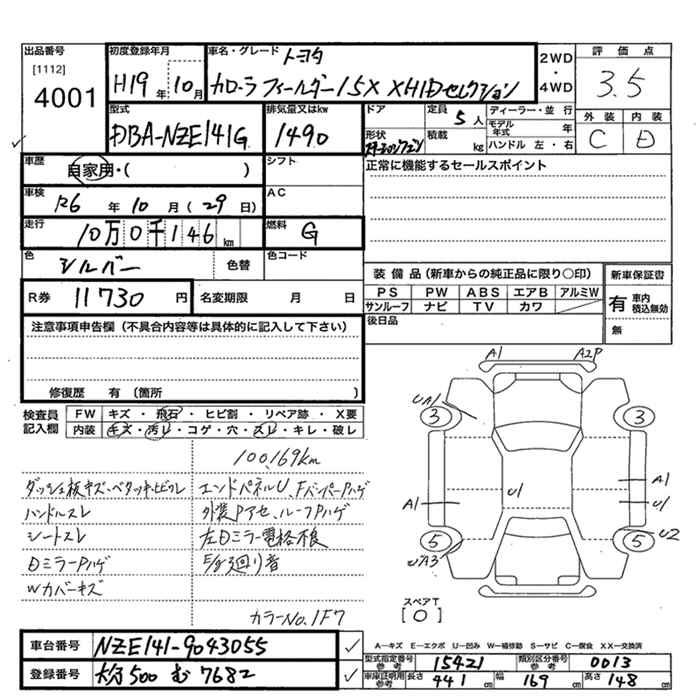 出品番号 初度登録年月 車名・グレード トヨタ 2WD 評価点
[1112] 4001 H19年 10月 カローラフィールダー 1.5X XHIDセレクション 4WD 3.5
型式 排気量又はkw ドア 定員 5人 ディーラー・並行 外装 内装
DBA-NZE141G 1490 形状 ステーションワゴン 積載 kg モデル年式 年 ハンドル 左・右 C D
車歴 自家用・( ) シフト 正常に機能するセールスポイント
車検 R6年 10月(29日) AC
走行 10万0千146km 燃料 G
色 シルバー 色替 色コード 装備品(新車からの純正品に限り○印) 新車保証書
R券 11730円 名変期限 月 日 PS PW ABS エアB アルミW 有 車内積込無効
サンルーフ ナビ TV カワ
後日品 無
注意事項申告欄(不具合内容等は具体的に記入して下さい)
修復歴 有(箇所 )
検査員記入欄 FW キズ・飛石・ヒビ割・リペア跡・X要
内装 キズ・汚レ・コゲ・穴・スレ・キレ・破レ
100,169km
ダッシュ板キズ、ベタツキ・ヒビワレ エンドパネルU、FバンパーPハゲ
ハンドルスレ 外装Pアセ、ルーフPハゲ
シートスレ 左Dミラー電格不良
DミラーPハゲ 廻り音
Wカバーキズ
カラーNo.1F7
A1 A2P
UA1 3 3
A1 U1 A1 U1
5 5 U2
UA3
スペアT
[0]
車台番号 NZE141-9043055
登録番号 大分500 む 7682
A—キズ E—エクボ U—凹み W—補修跡 S—サビ C—腐食 XX—交換済
型式指定番号参考 15421 類別区分番号参考 0013
車庫証明用参考 長さ 441cm 幅 169cm 高さ 148cm